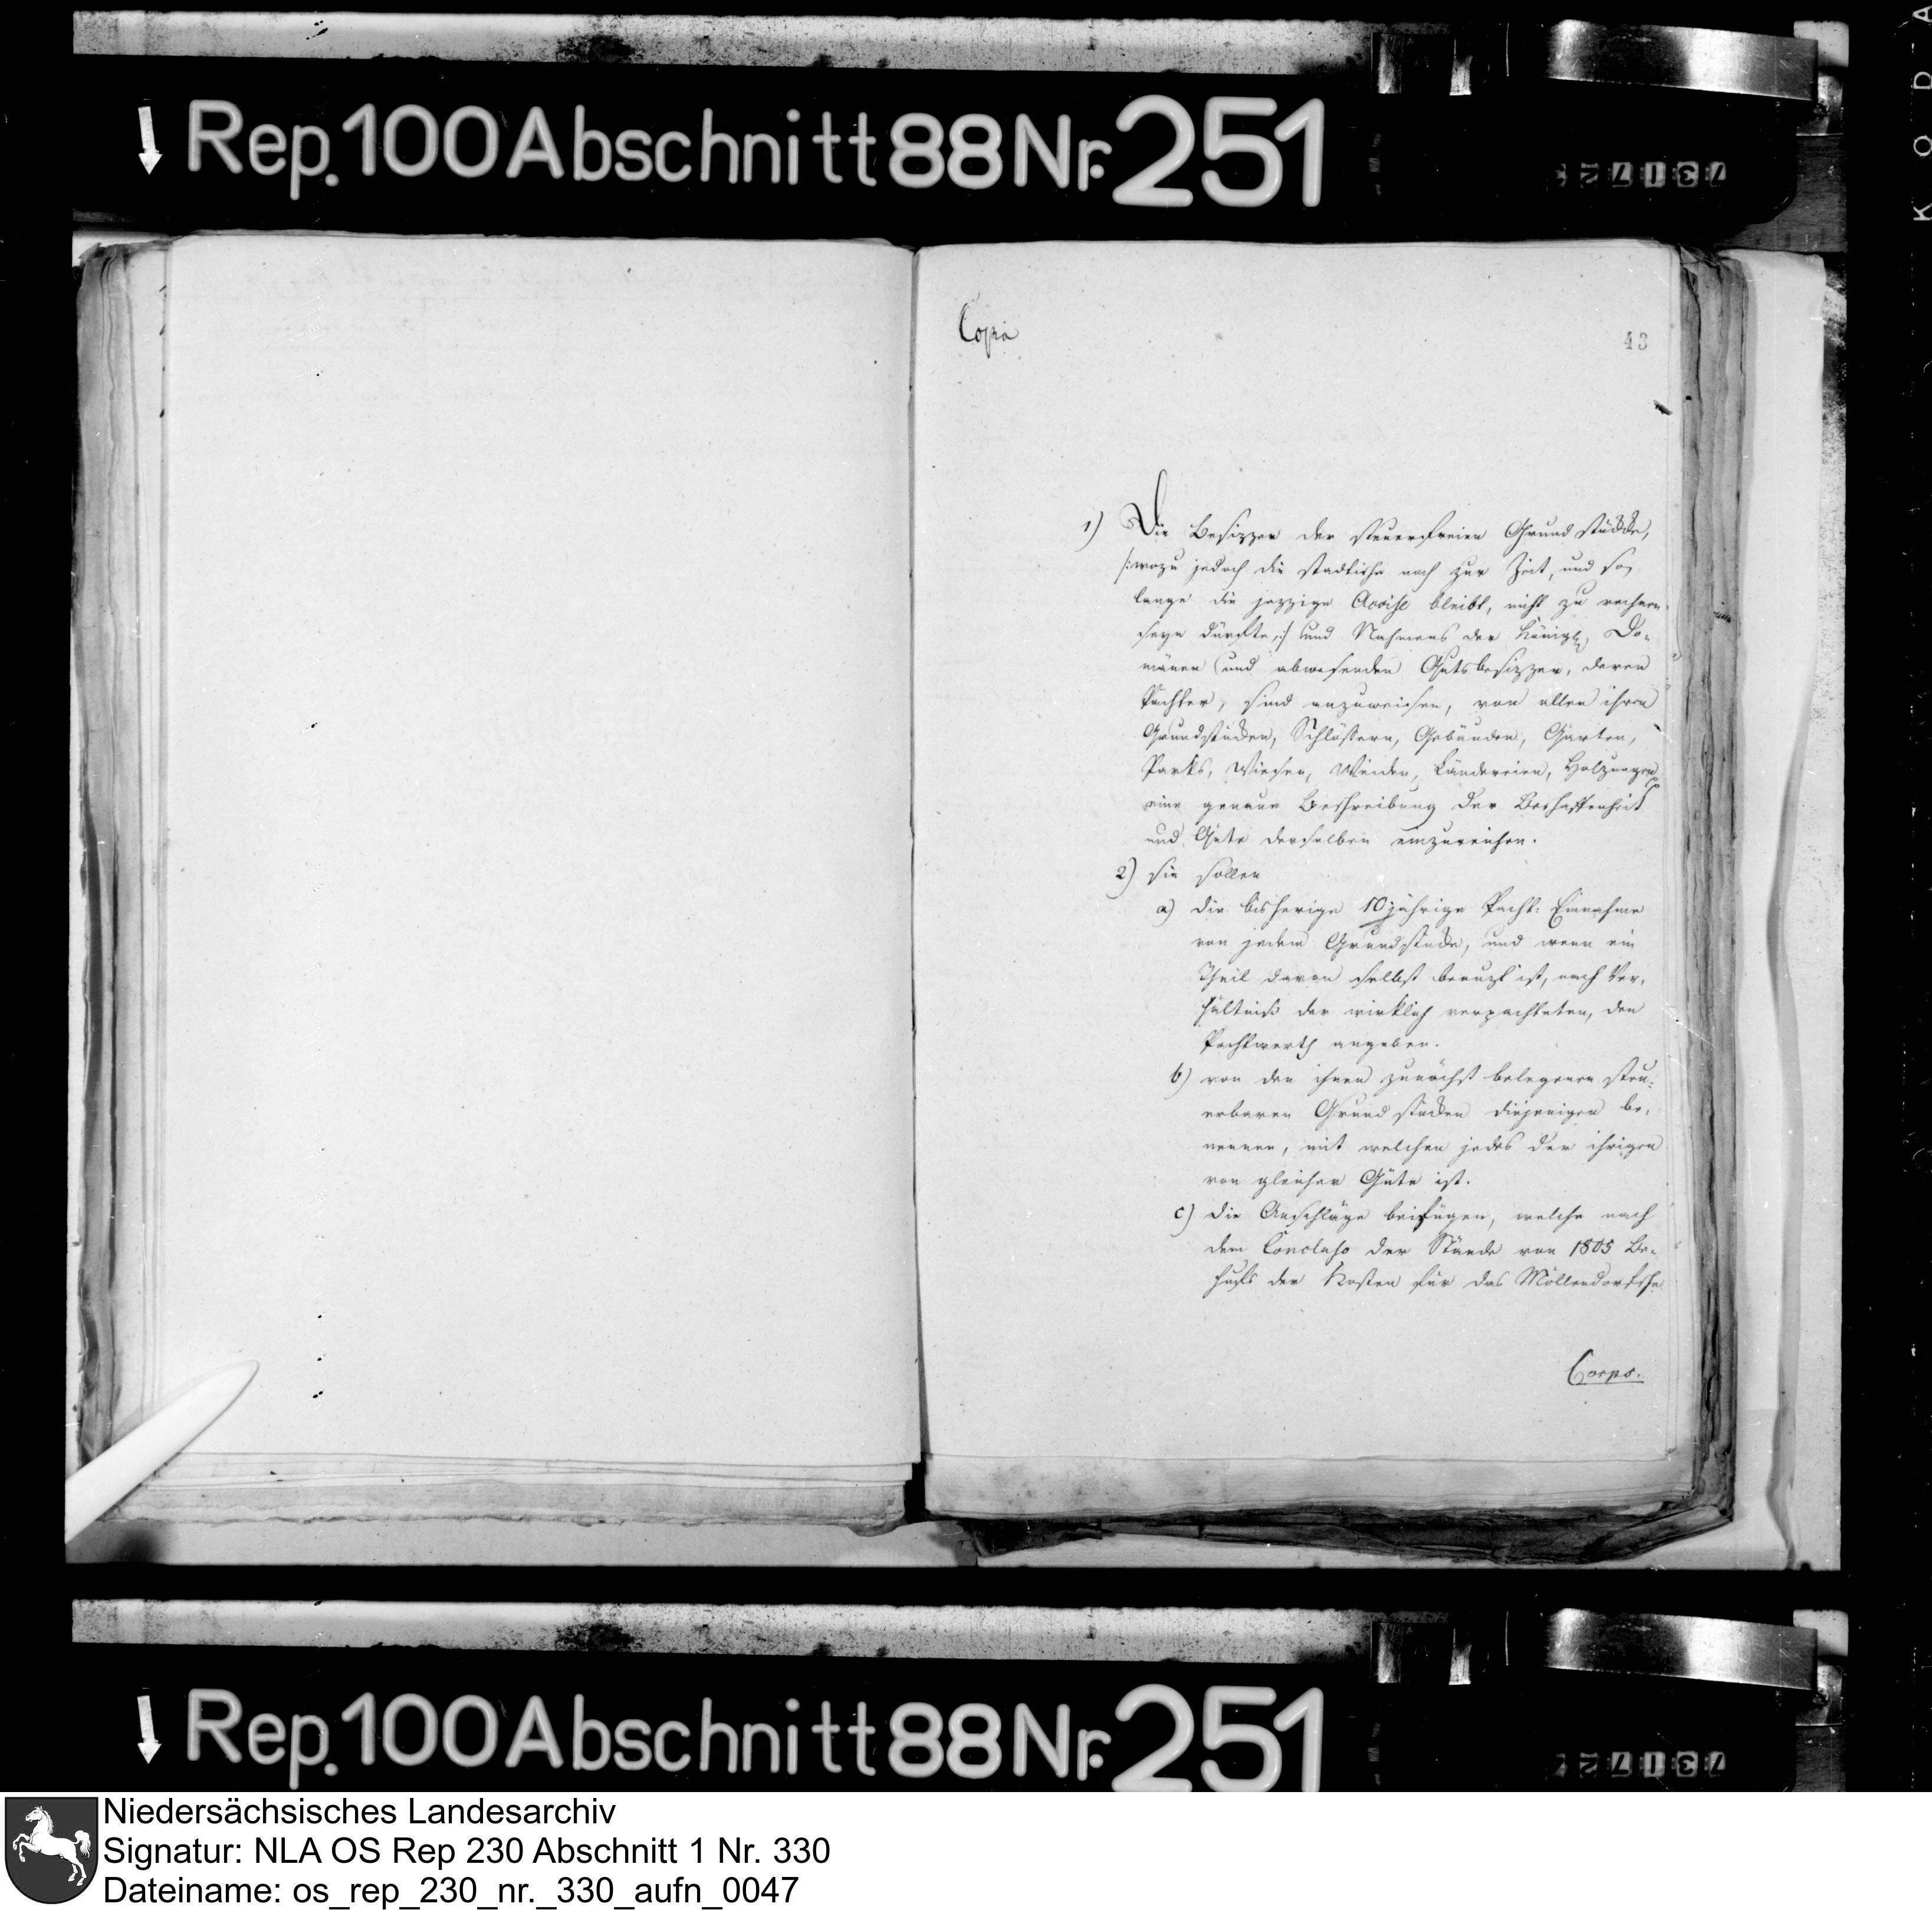 Rep. 100 Abschnitt 88 Nr. 251
Copia
43
1) Die Besizzer der steuerfreien Grundstücke,
/: wozu jedoch die stadtische noch zur Zeit, und so
lange die jezzige Accise bleibt, nicht zu rechnen
seyn dürfte, :/ und Nahmens der Königl. Do-
mänen und abwesenden Gutsbesizzer, deren
Pachter, sind anzuweisen, von allen ihren
Grundstücken, Schlössern, Gebäuden, Gärten,
Parks, Wiesen, Weiden, Ländereien, Holzungen
eine genaue Beschreibung der Beschaffenheit
und Güte derselben einzureichen.
2) sie sollen
a) die bisherige 10 jährige Pacht-Einnahme
von jedem Grundstücke, und wenn ein
Theil davon selbst benuzt ist, nach Ver-
hältniß der wirklich verpachteten, den
Pachtwerth angeben.
b) von den ihnen zunächst belegenen steu-
erbaren Grundstücken diejenigen be-
nennen, mit welchen jedes der ihrigen
von gleicher Güte ist.
c) die Anschläge beifügen, welche nach
dem Concluso der Stände von 1805 Be-
hufs der Kosten für das Möllendorfsche
Corps.
Rep. 100 Abschnitt 88 Nr. 251
Niedersächsisches Landesarchiv
Signatur: NLA OS Rep 230 Abschnitt 1 Nr. 330
Dateiname: os_rep_230_nr._330_aufn_0047